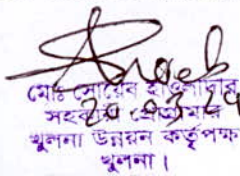 মোঃ সোয়েব হাওলাদার
সহকারী প্রোগ্রামার
খুলনা উন্নয়ন কর্তৃপক্ষ
খুলনা।